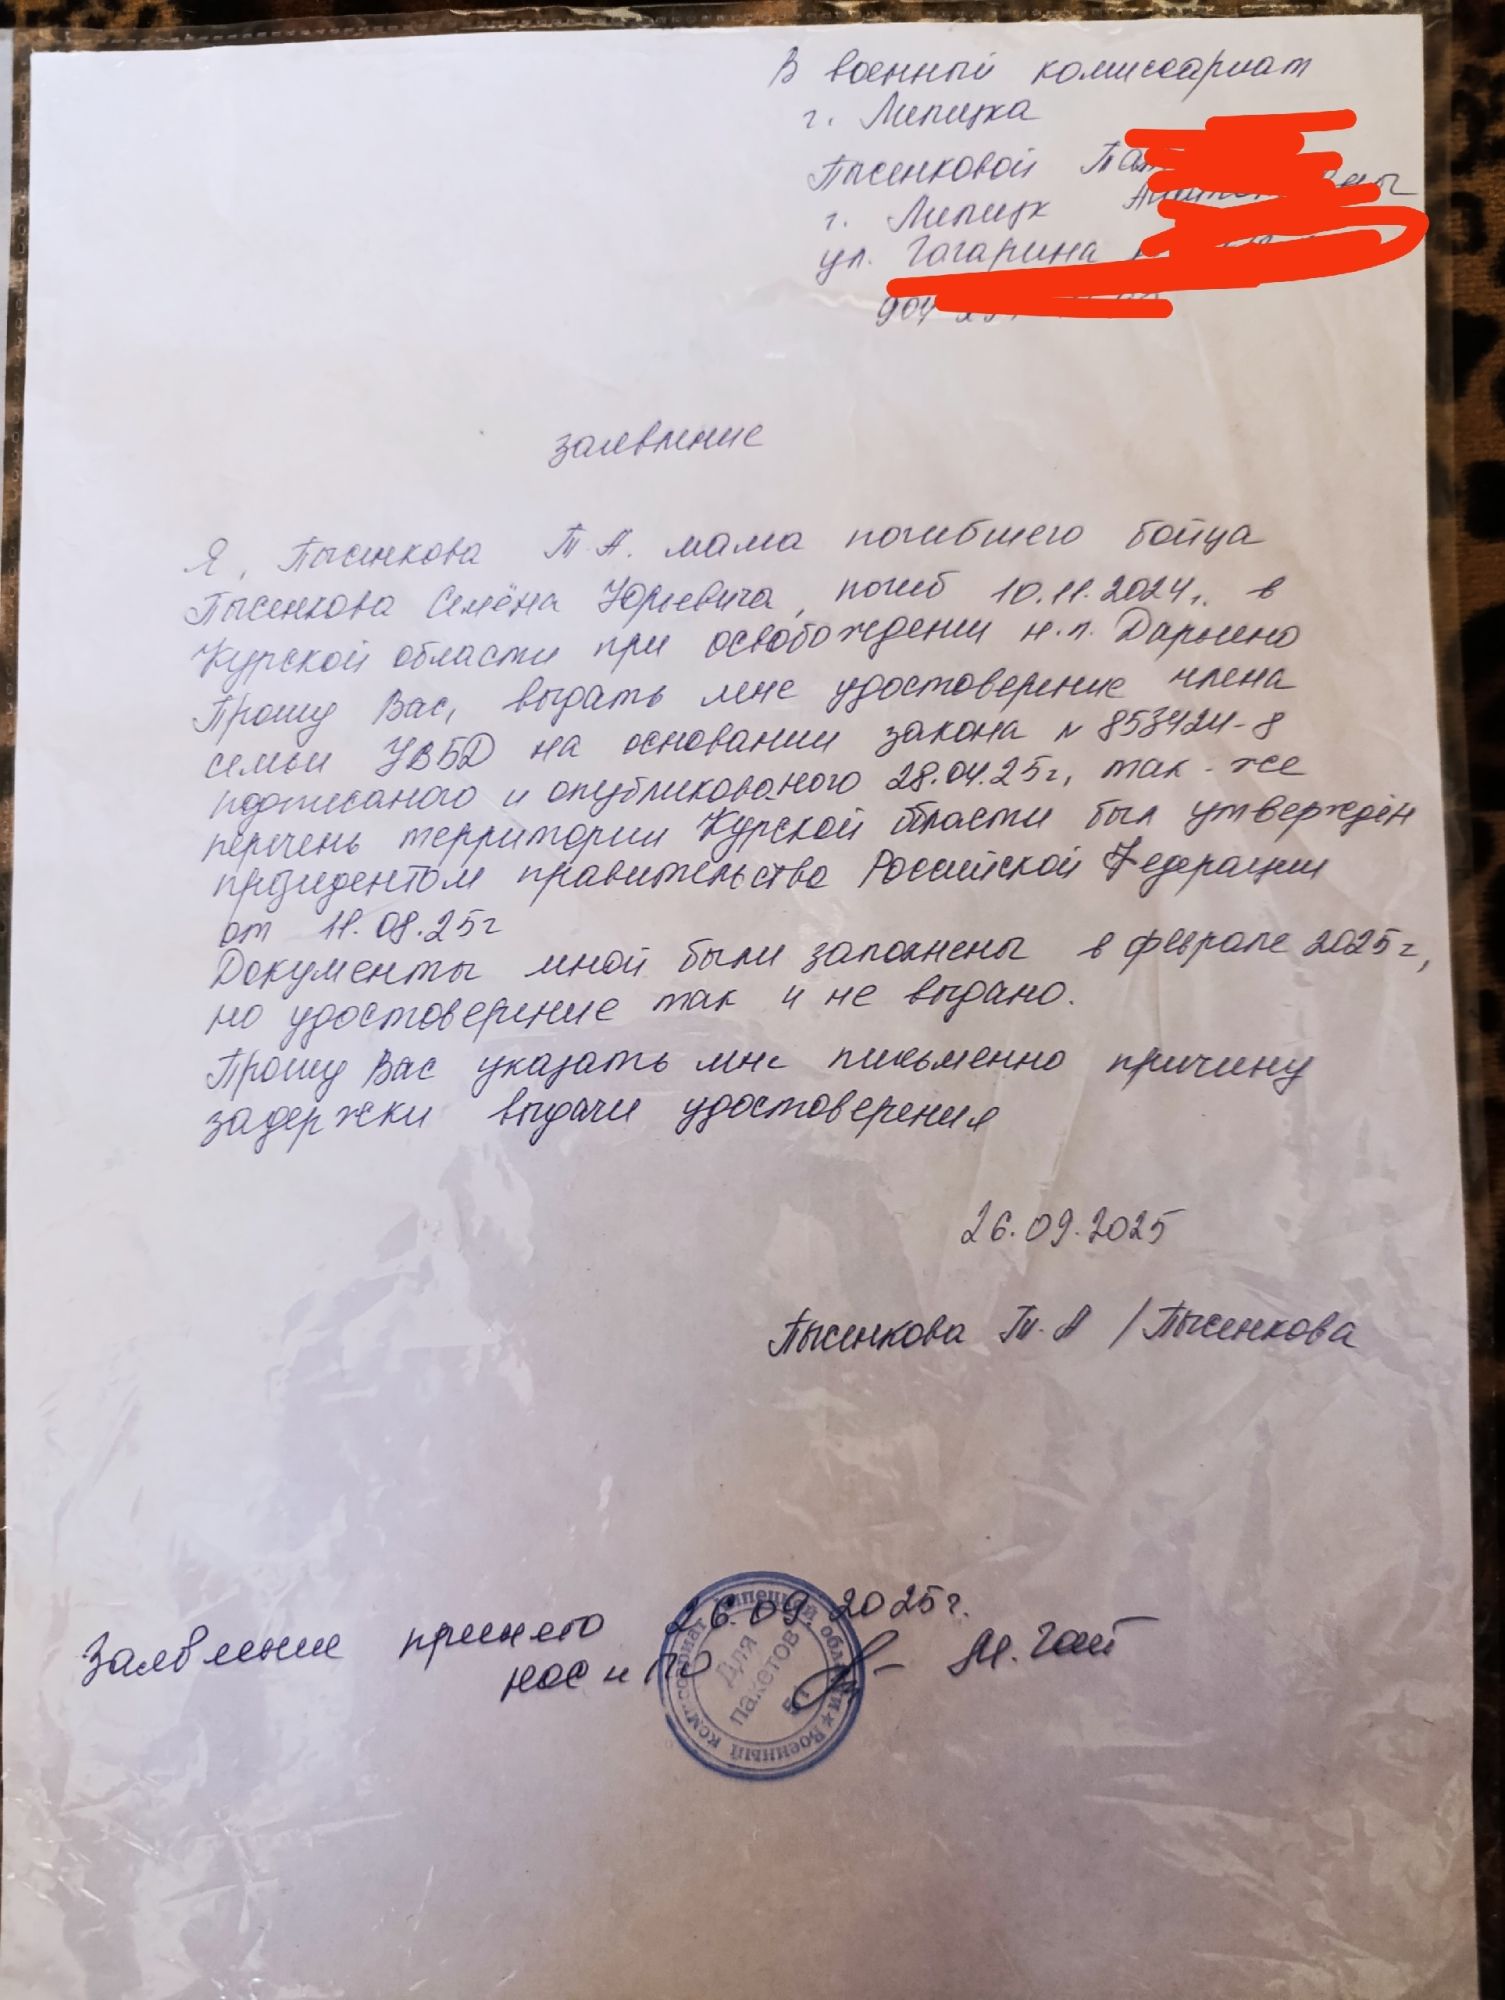 В военный комиссариат
г. Липецка
Пысенковой
г. Липецк
ул. Гагарина
904
заявление
Я, Пысенкова Т.А. мама погибшего бойца
Пысенкова Семёна Юрьевича, погиб 10.11.2024г. в
Курской области при освобождении н.п. Дарьино
Прошу Вас, выдать мне удостоверение члена
семьи УВБД на основании закона N 853424-8
подписаного и опубликованого 28.04.25г, так-же
перечень территории Курской области был утверждён
президентом правительства Российской Федерации
от 11.08.25г
Документы мной были заполнены в феврале 2025г,
но удостоверение так и не выдано.
Прошу Вас указать мне письменно причину
задержки выдачи удостоверения
26.09.2025
Пысенкова Т.А /Пысенкова
Заявление принято 26.09.2025г.
Военный комиссариат Липецкой области
Для
пакетов